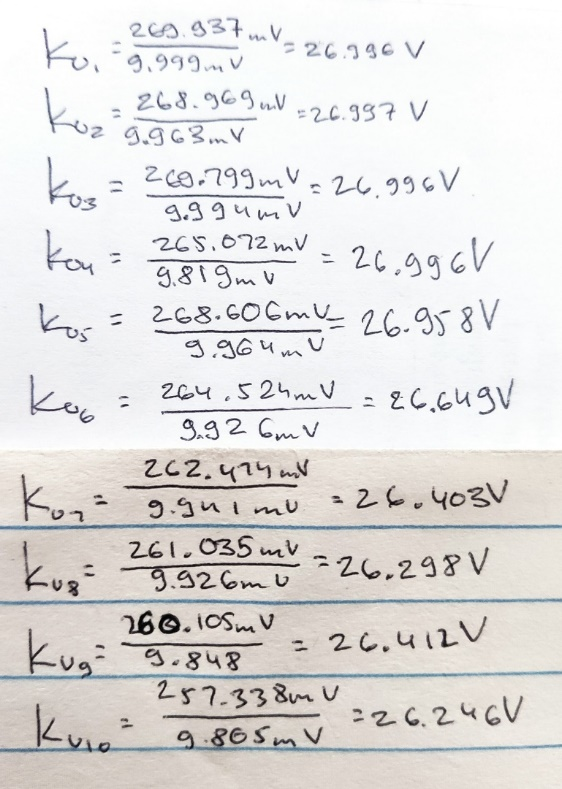 Ku1 = 269.937mV / 9.999mV = 26.996 V
Ku2 = 268.969mV / 9.963mV = 26.997 V
Ku3 = 269.799mV / 9.994mV = 26.996V
Ku4 = 265.072mV / 9.819mV = 26.996V
Ku5 = 268.606mV / 9.964mV = 26.958V
Ku6 = 264.524mV / 9.926mV = 26.649V
Ku7 = 262.474mV / 9.941mV = 26.403V
Ku8 = 261.035mV / 9.926mV = 26.298V
Ku9 = 260.105mV / 9.848 = 26.412V
Ku10 = 257.338mV / 9.805mV = 26.246V